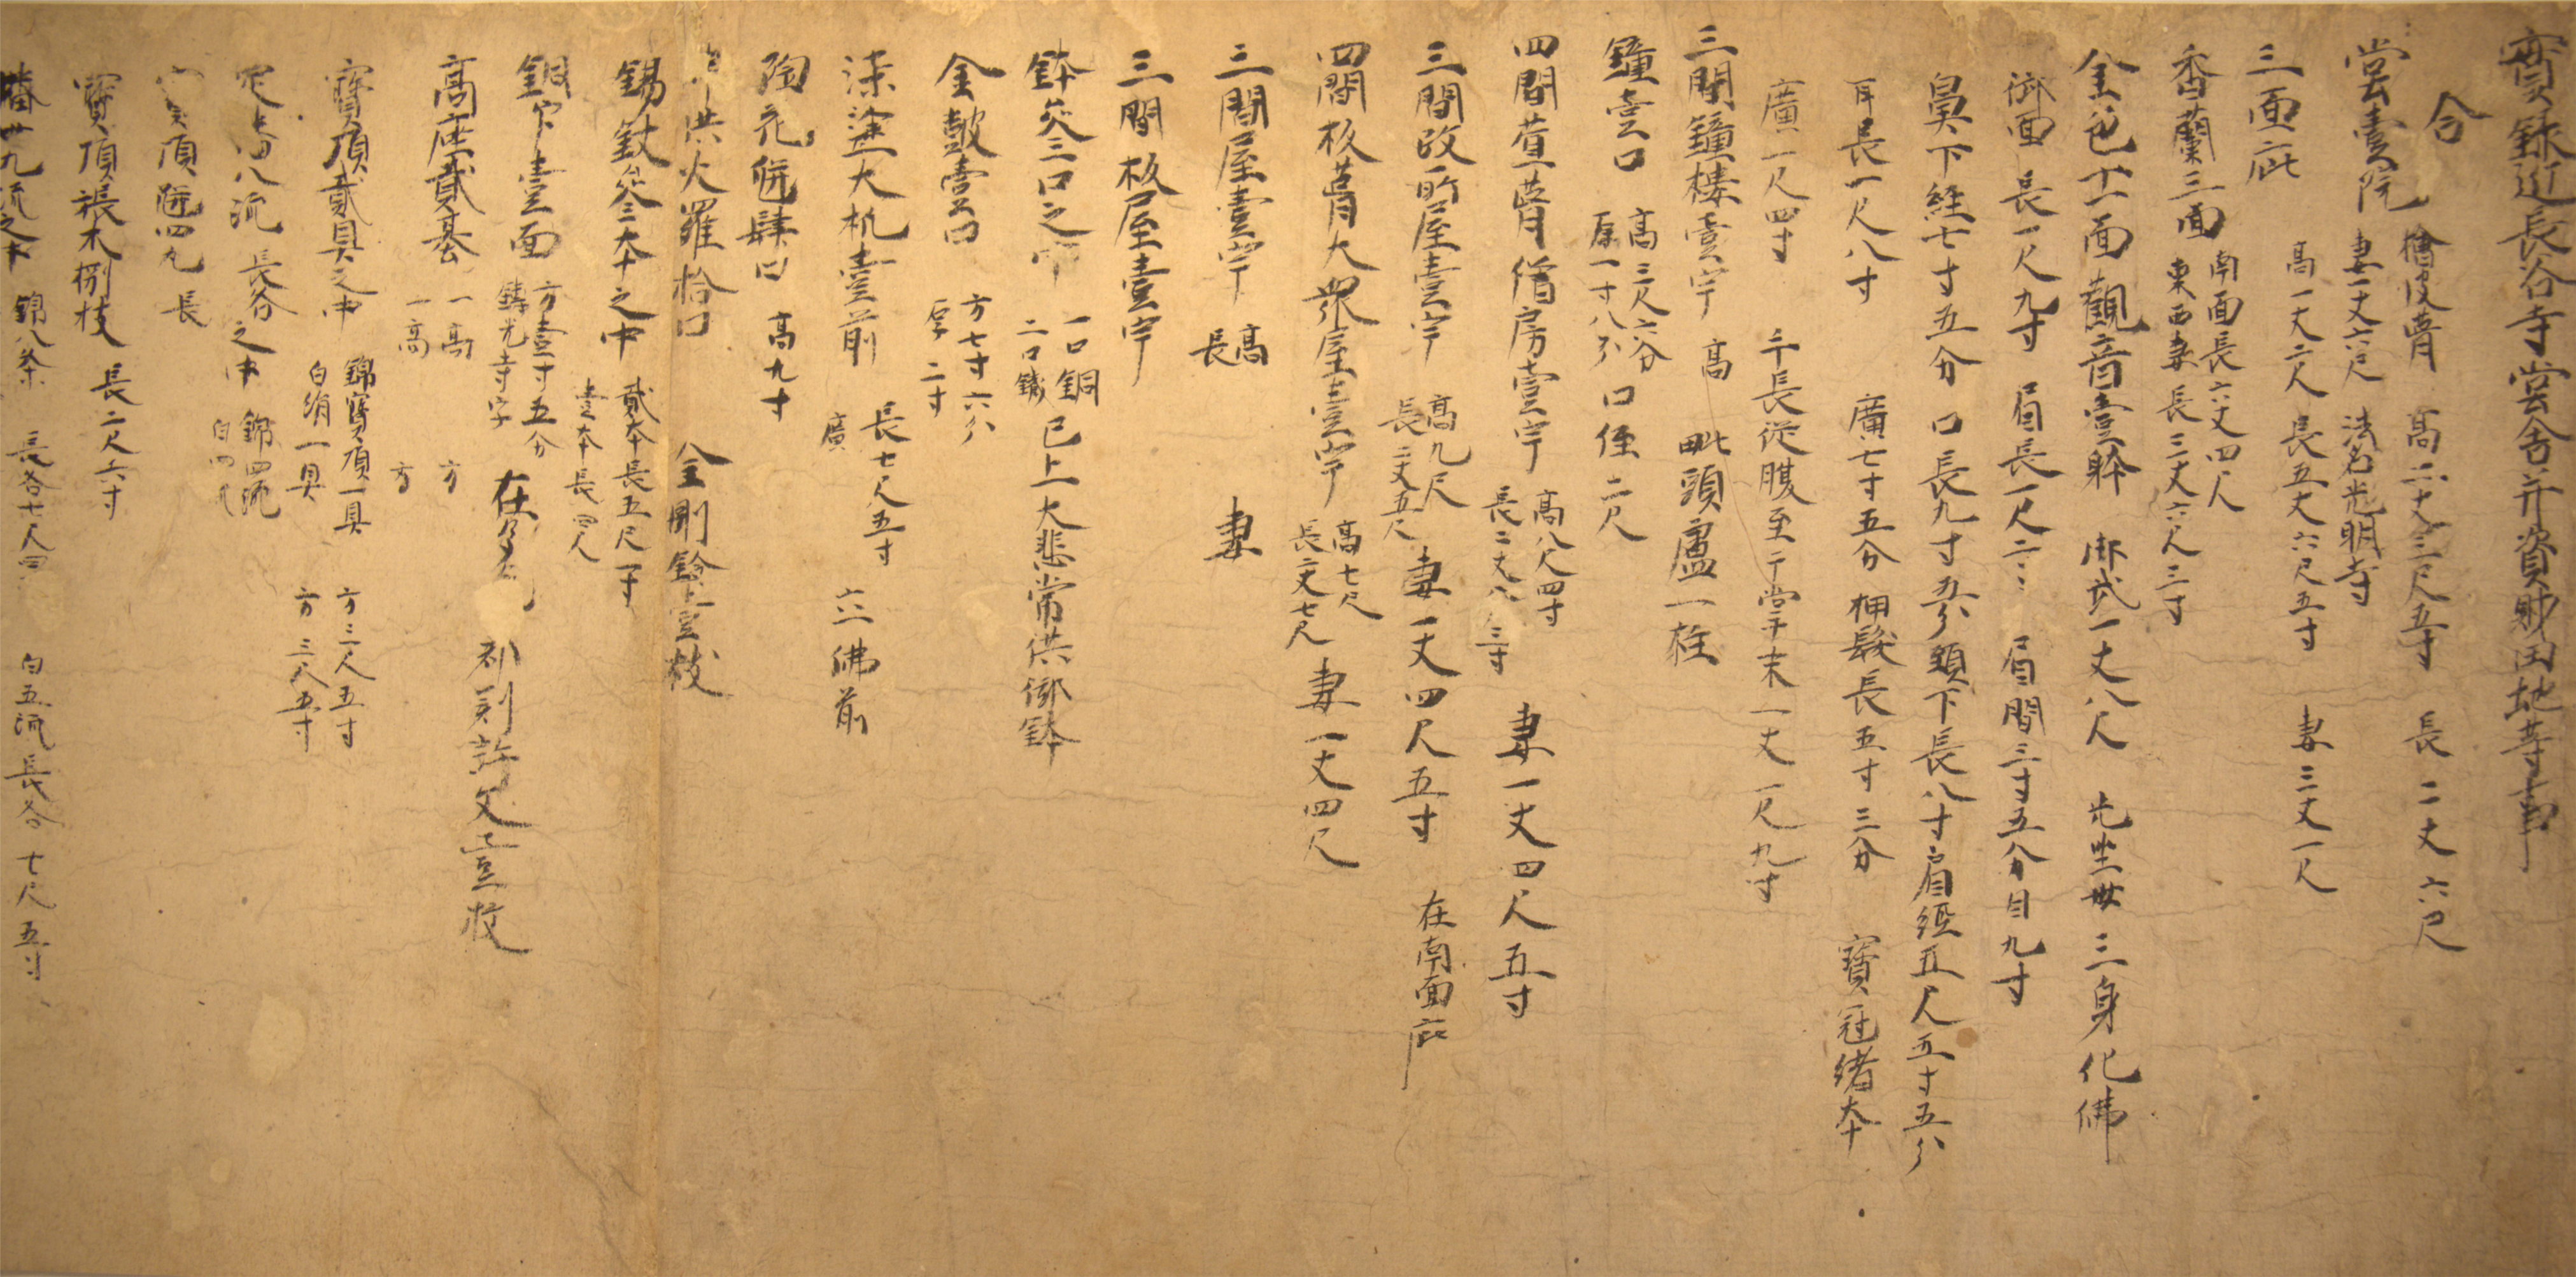 實録近長谷寺堂舎并資財田地等事
合
堂壹院 檜皮葺 高二丈三尺五寸 長二丈六尺
妻一丈六尺 法名光明寺
三面庇 高一丈二尺 長五丈六尺五寸 妻三丈一尺
香蘭三面 南面長六丈四尺
東西妻長三丈六尺三寸
金色十一面觀音壹躰 御武一丈八尺 光坐丗三身化佛
御面長一尺九寸 眉長一尺二 眉間三寸五分 目九寸
鼻下經七寸五分 口長九寸五分 頸下長八寸 肩經五尺五寸五分
耳長一尺八寸 廣七寸五分 柙髮長五寸三分 寶冠緒本
廣一尺四寸 千長從腹至于掌末一丈一尺九寸
三間鐘樓壹宇 高 毗頭盧一柱
鐘壹口 高三尺六分
厚一寸八分 口徑二尺
四間萱葺僧房壹宇 高八尺四寸
長二丈八 三寸 妻一丈四尺五寸
三間政所屋壹宇 高九尺
長三丈五尺 妻一丈四尺五寸 在南面庇
四間板葺大衆屋壹宇 高七尺
長二丈七尺 妻一丈四尺
三間屋壹宇 高
長 妻
三間板屋壹宇
鉢叄口之中 一口銅
二口鐵 已上大悲常供御鉢
金皷壹口 方七寸六分
厚二寸
漆塗大机壹前 長七尺五寸
廣 六佛前
陶花瓶肆口 高九寸
供火羅拾口 金剛鈴壹枝
錫杖叄本之中 貳本長五尺一寸
壹本長四尺
銅印壹面 方壹寸五分
鑄光寺字 在
高座貳基 一高 方
一高 方
寶頂貳具之中 錦寶頂一具 方三尺五寸
白絹一具 方三尺五寸
八流 長各 之中 錦四流
白四流
頂 四九 長
寶頂張木捌枝 長二尺六寸
幡丗九流之中 錦八条 長各七尺四 白五流 長各七尺五寸